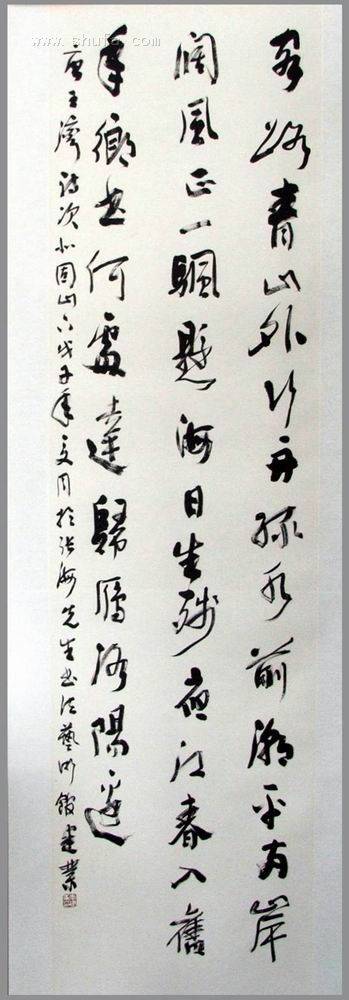 www.shufa.com
客路青山外行舟綠水前潮平兩岸
闊風正一颿懸海日生殘夜江春入舊
年鄉書何處達歸鴈洛陽邊
唐王灣詩次北固山下戊子年夏月於張海先生書法藝術館建業